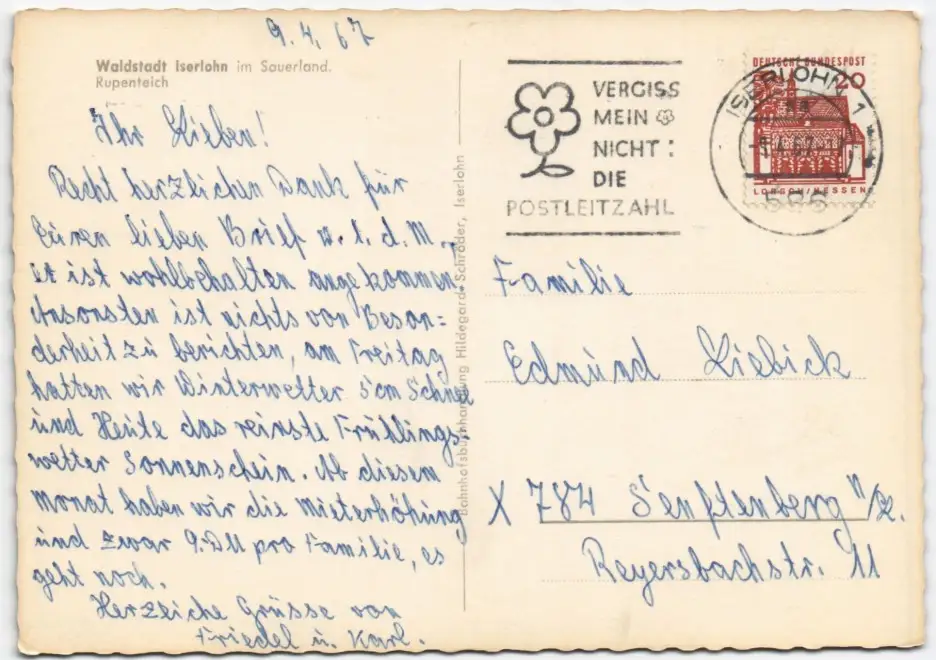 9. 4. 67
Waldstadt Iserlohn im Sauerland.
Rupenteich
Ihr Lieben!
Recht herzlichen Dank für
Euren lieben Brief u. l. d. M.,
er ist wohlbehalten angekommen.
Ansonsten ist nichts von Beson=
derheit zu berichten, am Freitag
hatten wir Winterwetter 5 cm Schnee
und Heute das reinste Frühlings-
wetter Sonnenschein. Ab diesem
Monat haben wir die Mieterhöhung
und zwar 9.DM pro Familie, es
geht noch.
Herzliche Grüsse von
Friedel u. Karl.
Bahnhofsbuchhandlung Hildegard Schröder, Iserlohn
VERGISS
MEIN
NICHT :
DIE
POSTLEITZAHL
ISERLOHN 1
585
DEUTSCHE BUNDESPOST
20
LORSCH/HESSEN
Familie
Edmund Liebick
X 784 Senftenberg N/L.
Reyersbachstr. 11